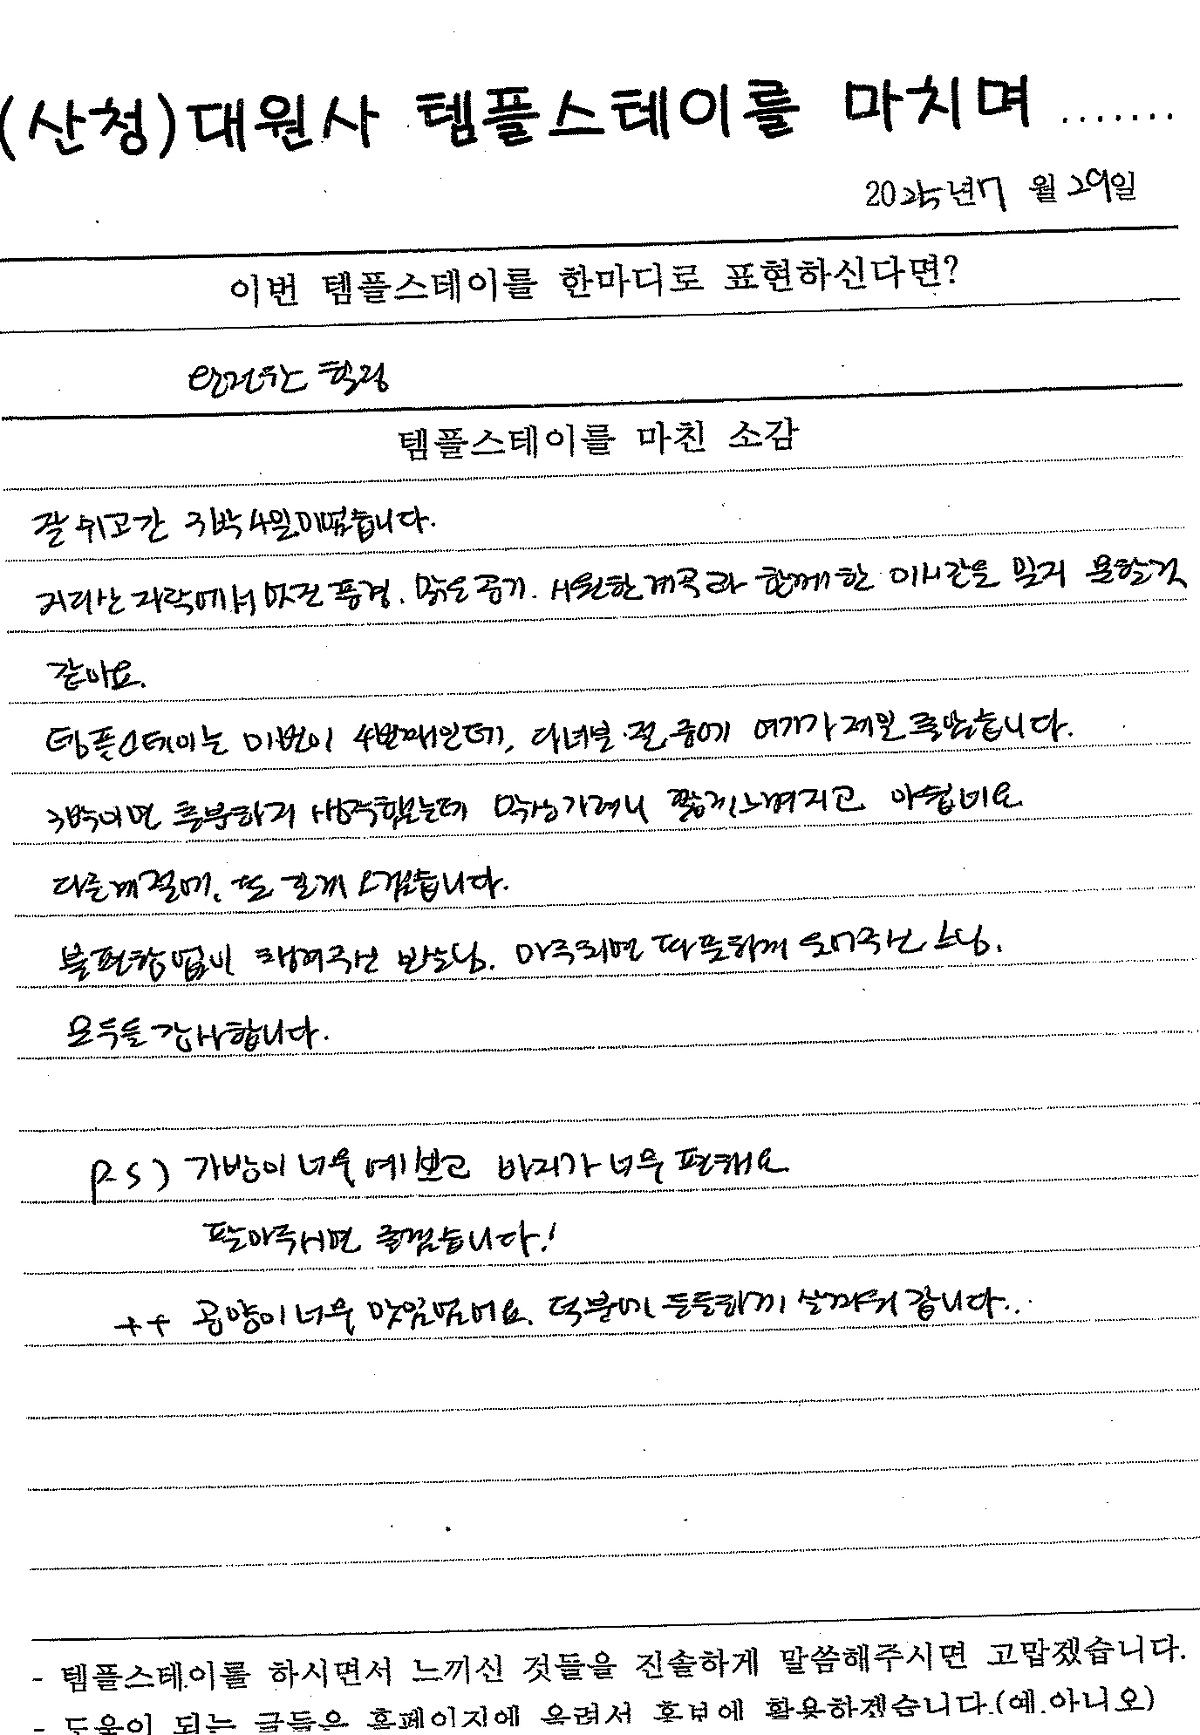 (산청)대원사 템플스테이를 마치며 .......
2025년 7월 29일
이번 템플스테이를 한마디로 표현하신다면?
완전한 힐링
템플스테이를 마친 소감
잘 쉬고간 3박4일이었습니다.
지리산 자락에서 멋진 풍경, 맑은공기, 시원한계곡과 함께한 이시간을 잊지 못할것
같아요.
템플스테이는 이번이 4번째인데, 다녀본 절 중에 여기가 제일 좋았습니다.
3박이면 충분하지 생각했는데 막상가려니 짧게느껴지고 아쉽네요
다른계절에, 또 길게 오겠습니다.
불편함 없이 챙겨주신 보살님, 마주치면 따뜻하게 웃어주신 스님,
모두들 감사합니다.
P.S) 가방이 너무 예쁘고 바지가 너무 편해요
팔아주시면 좋겠습니다!
++ 공양이 너무 맛있었어요. 덕분에 든든하게 살쪄서 갑니다..
- 템플스테이를 하시면서 느끼신 것들을 진솔하게 말씀해주시면 고맙겠습니다.
- 도움이 되는 글들은 홈페이지에 올려서 홍보에 활용하겠습니다.(예.아니오)